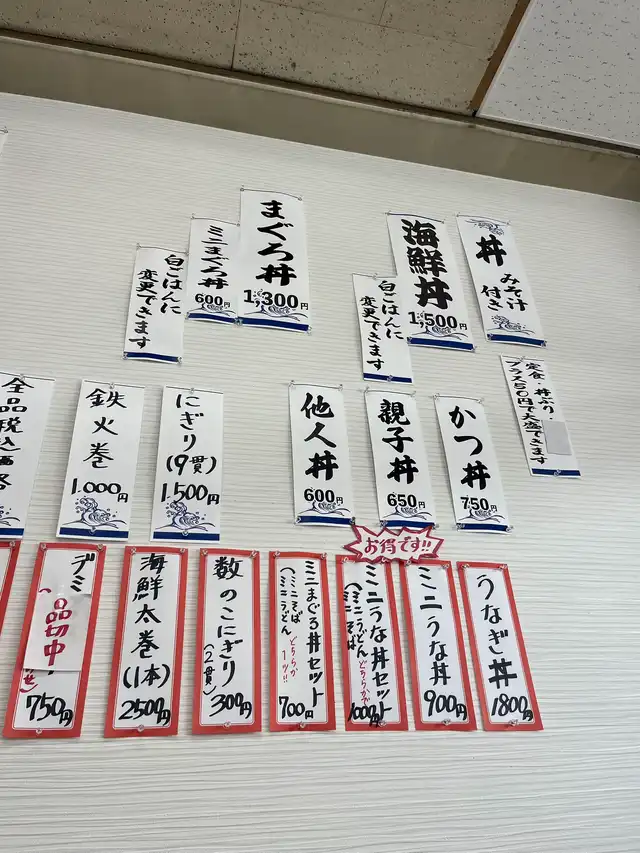 丼
みそ汁
付き
海鮮丼
1,500円
白ごはんに
変更できます
まぐろ丼
1,300円
ミニまぐろ丼
600円
白ごはんに
変更できます
定食・丼ぶり・
プラス50円で大盛できます
かつ丼
750円
親子丼
650円
他人丼
600円
にぎり
(9貫)
1,500円
鉄火巻
1,000円
全品税込価格
お得です!!
うなぎ丼
1800円
ミニうな丼
900円
ミニうな丼セット
(ミニうどん
ミニそば
どちらか
1000円
ミニまぐろ丼セット
(ミニそば
ミニうどん
どちらか
1ツ!!
700円
数のこにぎり
(2貫)
300円
海鮮太巻
(1本)
2500円
デミ
品切中
750円